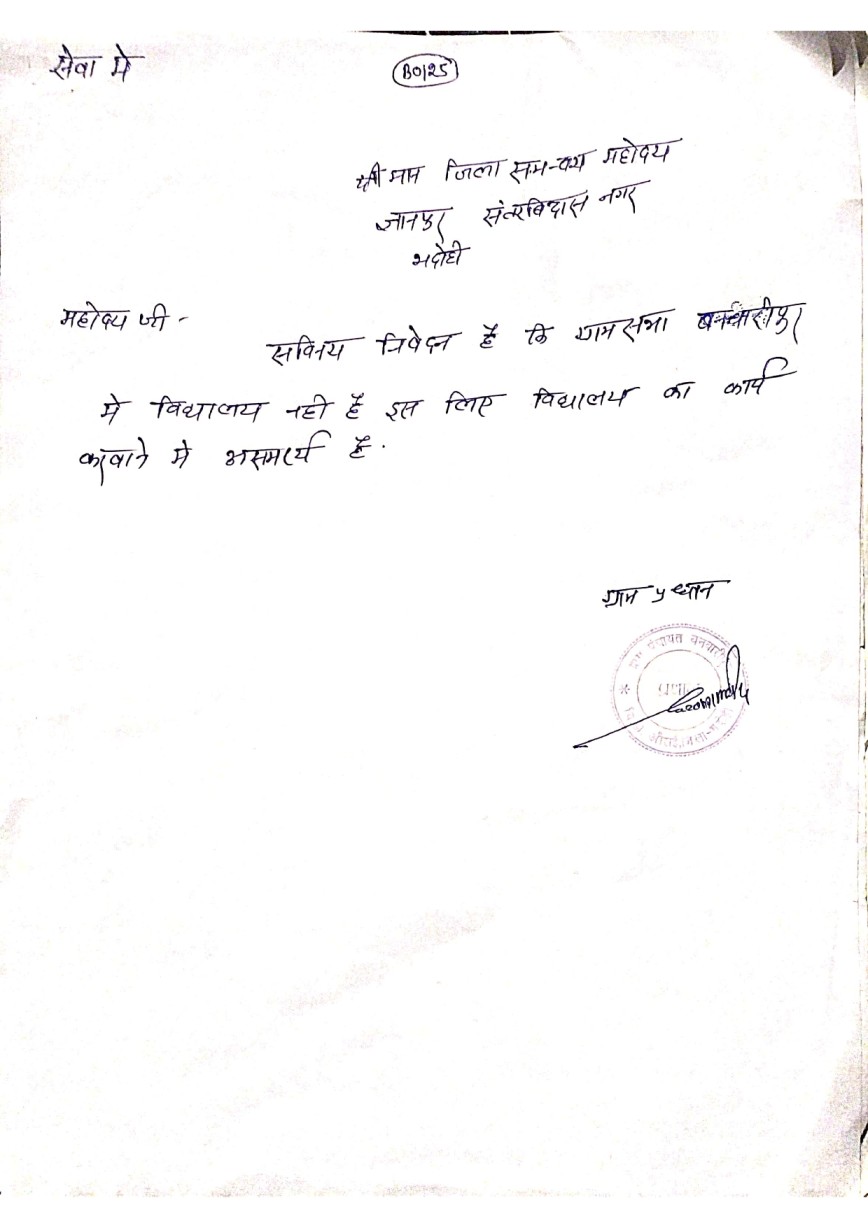 सेवा मे
B0125
श्री मान जिला समन्वय महोदय
ज्ञानपुर संतरविदास नगर
भदोही
महोदय जी -
सविनय निवेदन है कि ग्रामसभा बनवारीपुर
मे विद्यालय नही है इस लिए विद्यालय का कार्य
करवाने मे असमर्थ है.
ग्राम प्रधान
ग्राम पंचायत बनवारीपुर